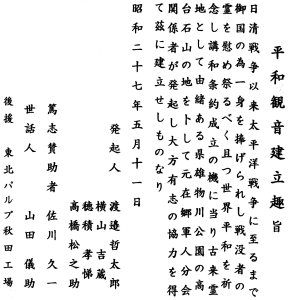 平和観音建立趣旨
日清戦争以来太平洋戦争に至るまで
御国の為一身を捧げられし戦没者の
霊を慰め祭るべく且つ世界平和を祈
念し講和条約成立の機に当り古来霊
地として由緒ある県雄物川公園の高
台石山の地を卜して元在郷軍人分会
関係者が発起し大方有志の協力を得
て茲に建立せしものなり
昭和二十七年五月十一日
発起人 渡邉哲太郎
横山吉蔵
穂積孝悌
高橋松之助
篤志賛助者 佐川久一
世話人 山田儀助
後援 東北パルプ秋田工場